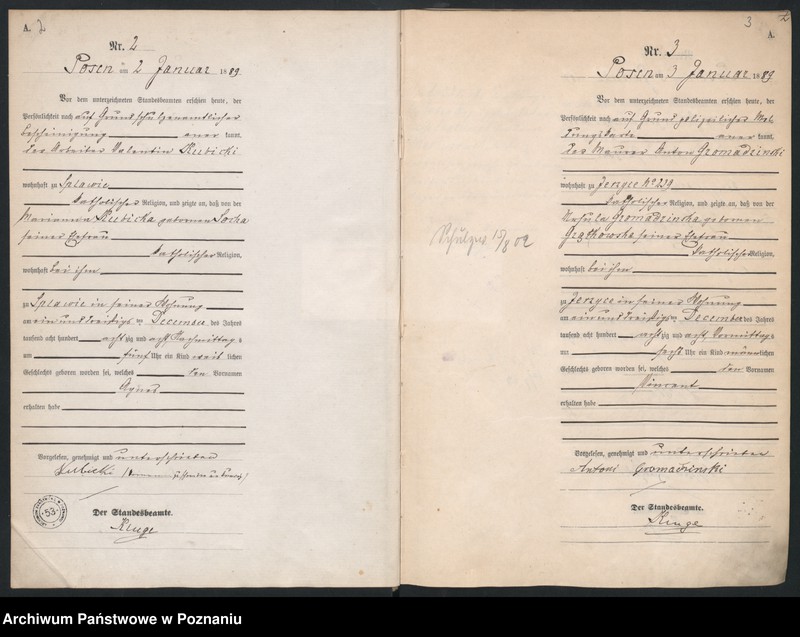 A. 2
Nr. 2
Posen am 2 Januar 1889
Vor dem unterzeichneten Standesbeamten erschien heute, der
Persönlichkeit nach auf Grund
bescheinigung kannt,
der Arbeiter Valentin Rubicki
wohnhaft zu Splawie
katholischer Religion, und zeigte an, daß von der
Marianna Rubicka geborenen Socha
seiner Ehefrau
katholischer Religion,
wohnhaft bei ihm
zu Splawie in seiner Wohnung
am ein und dreißigsten December des Jahres
tausend acht hundert achtzig und acht Nachmittags
um fünf Uhr ein Kind weiblichen
Geschlechts geboren worden sei, welches den Vornamen
Agnes
erhalten habe
Vorgelesen, genehmigt und unterschrieben
Der Standesbeamte.
53
3
A.
Nr. 3
Posen am 3 Januar 1889
Vor dem unterzeichneten Standesbeamten erschien heute, der
Persönlichkeit nach auf Grund polizeilicher Mel
dungskarte kannt,
der Maurer Anton Gromadzinski
wohnhaft zu Jerzyce No 239
katholischer Religion, und zeigte an, daß von der
Gromadzinska geborenen
seiner Ehefrau
katholischer Religion,
wohnhaft bei ihm
zu Jerzyce in seiner Wohnung
am ein und dreißigsten December des Jahres
tausend acht hundert achtzig und acht Vormittags
um sechs Uhr ein Kind männlichen
Geschlechts geboren worden sei, welches den Vornamen
Vincent
erhalten habe
Vorgelesen, genehmigt und unterschrieben
Antoni Gromadzinski
Der Standesbeamte.
Archiwum Państwowe w Poznaniu